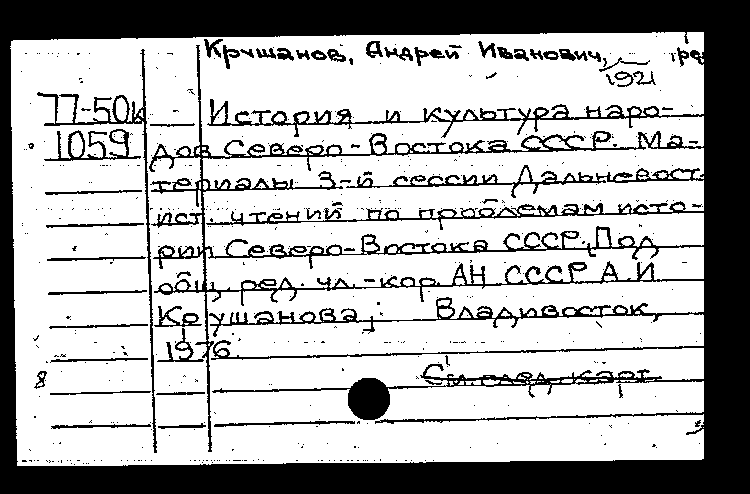 Крушанов, Андрей Иванович, ред
1921
77-50к
1059
История и культура наро-
дов Северо-Востока СССР. Ма-
териалы 3-й сессии Дальневост.
ист. чтений по проблемам исто-
рии Северо-Востока СССР. Под
общ. ред. чл.-кор. АН СССР А.И
Крушанова; Владивосток,
1976
См. след. карт
8